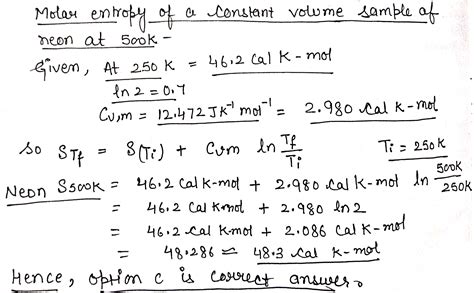 Molar entropy of a constant volume sample of
neon at 500K -
Given, At 250 K = 46.2 Cal K-mol
ln 2 = 0.7
Cv,m = 12.472 JK⁻¹ mol⁻¹ = 2.980 Cal K-mol
so STf = S(Ti) + Cvm ln Tf/Ti Ti = 250K
Neon S500K = 46.2 Cal K-mol + 2.980 Cal K-mol ln 500K/250K
= 46.2 Cal K-mol + 2.980 ln2
= 46.2 Cal K-mol + 2.086 Cal K-mol
= 48.286 ≃ 48.3 Cal K-mol
Hence, option c is correct answer.